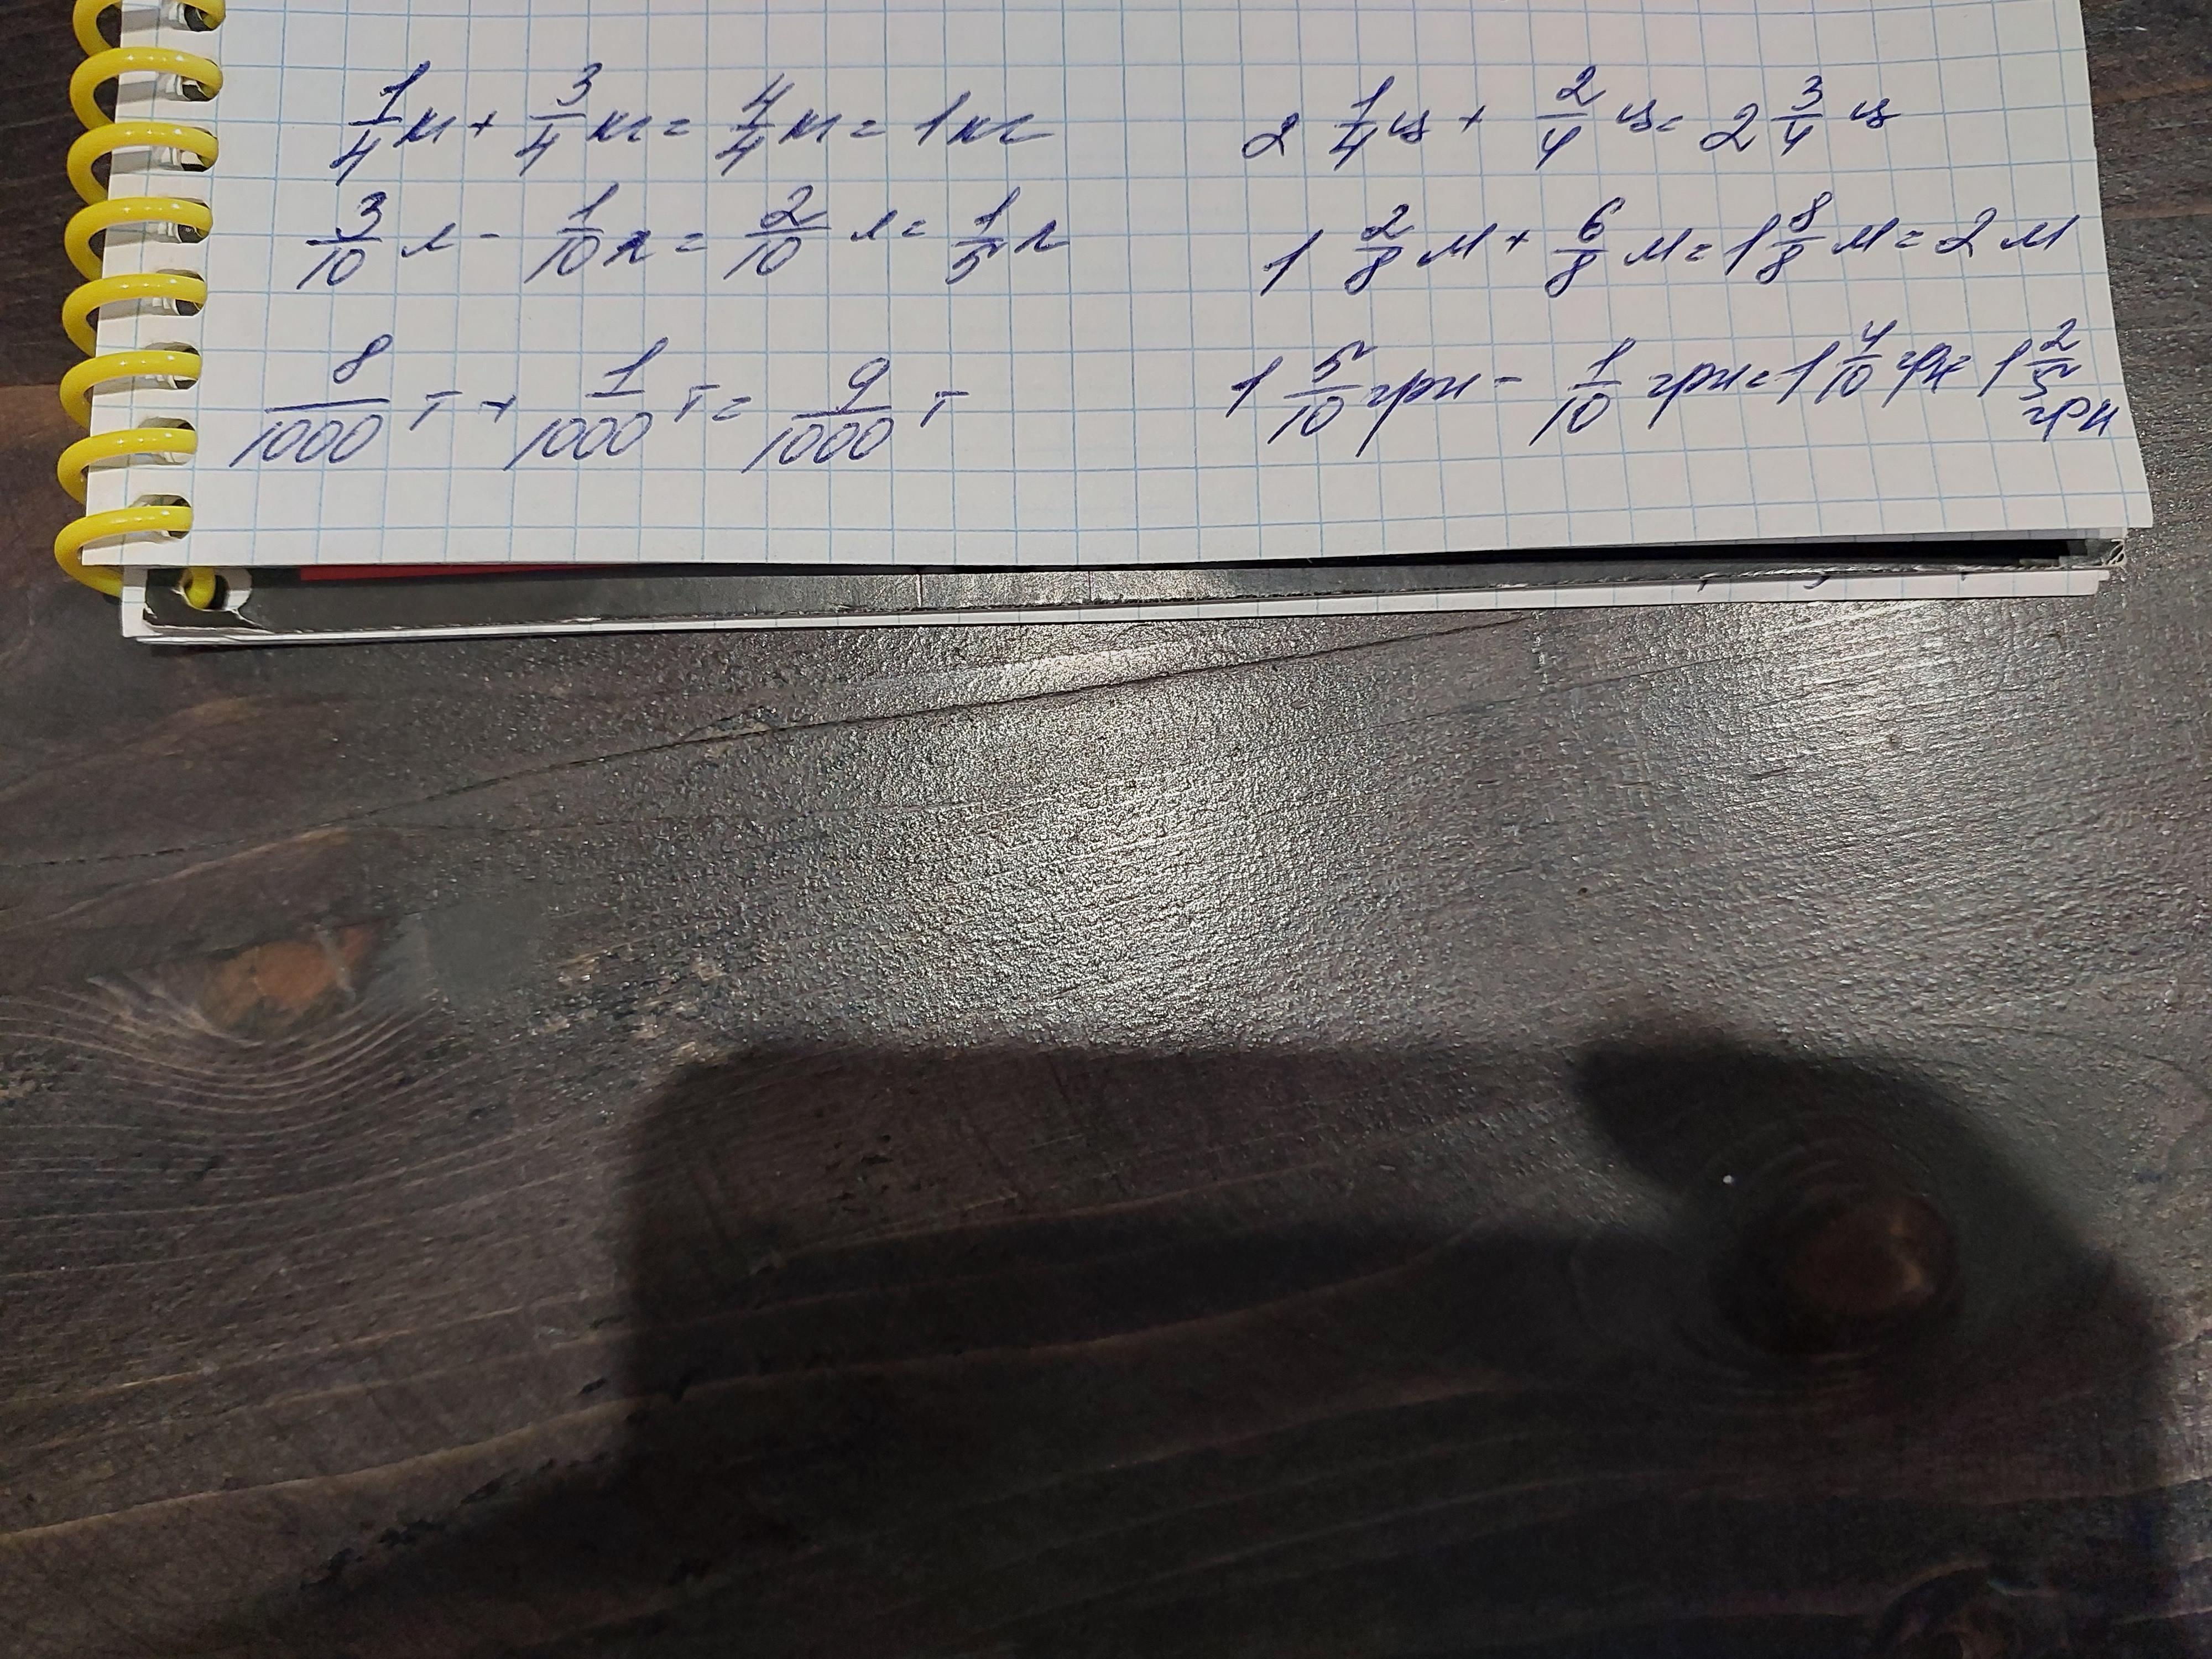 1/4 кг + 3/4 кг = 4/4 кг = 1 кг
3/10 л - 1/10 л = 2/10 л = 1/5 л
8/1000 т + 1/1000 т = 9/1000 т
2 1/4 ц + 2/4 ц = 2 3/4 ц
1 2/8 м + 6/8 м = 1 8/8 м = 2 м
1 5/10 грн - 1/10 грн = 1 4/10 грн = 1 2/5 грн